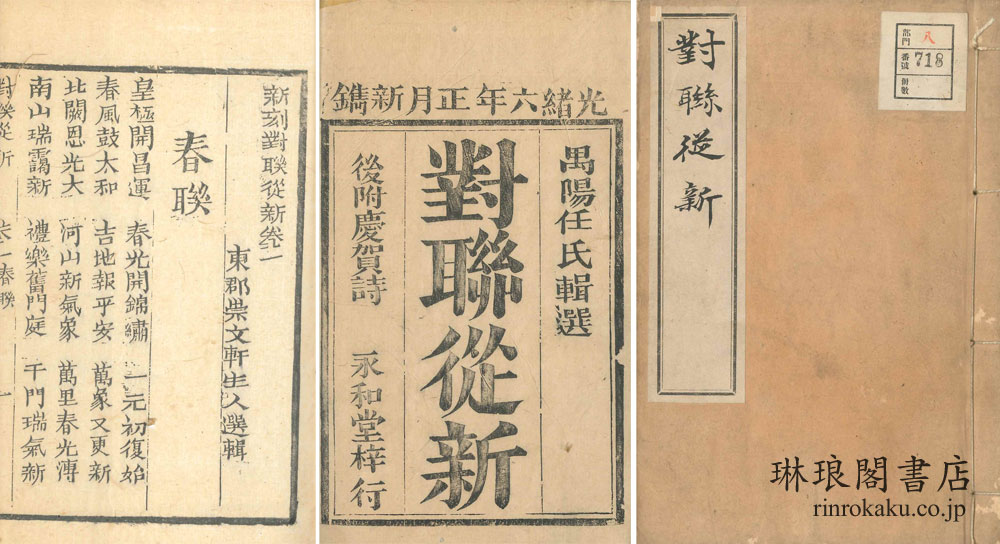 對聯從新
部門 八
番號 718
冊數
光緒六年正月新鐫
禺陽任氏輯選
對聯從新
後附慶賀詩 永和堂梓行
新刻對聯從新卷一
東郡崇文軒主人選輯
春聯
皇極開昌運 春光開錦繡 一元初復始
春風鼓太和 吉地報平安 萬象又更新
北闕恩光大 河山新氣象 萬里春光溥
南山瑞靄新 禮樂舊門庭 千門瑞氣新
對聯從新 卷一春聯 一
琳琅閣書店
rinrokaku.co.jp